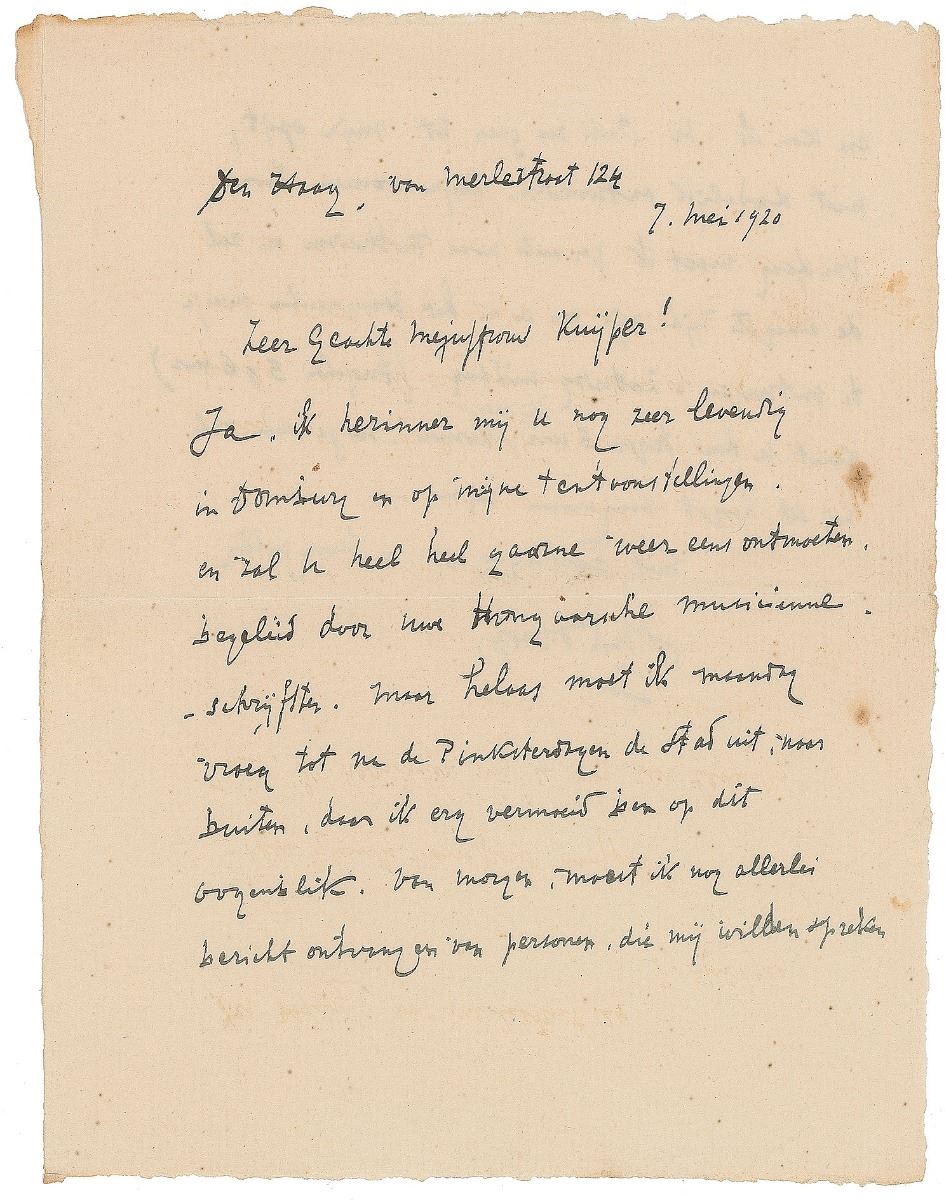 Den Haag, van Merlestraat 124
7. Mei 1920
Zeer Geachte Mejuffrouw Kuÿper!
Ja, ik herinner mij u nog zeer levendig
in Domburg en op mijne tentoonstellingen.
en zal u heel heel gaarne weer eens ontmoeten,
begeleid door uwe Hongaarsche musicienne
-schrijfster. Maar helaas moet ik maandag
vroeg tot na de Pinksterdagen de stad uit, naar
buiten, daar ik erg vermoeid ben op dit
oogenblik. Van morgen, moest ik nog allerlei
bericht ontvangen van personen, die mij willen spreken